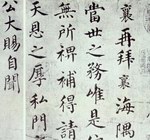 襄再拜襄海隅
當世之務唯是
無所裨補得請
天恩之厚私門
公大賜自聞